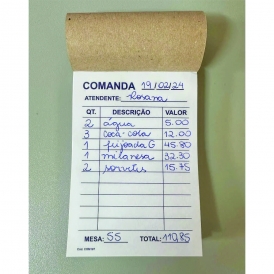 COMANDA 19/02/24
ATENDENTE: Rosana
QT. DESCRIÇÃO VALOR
2 água 5.00
3 coca-cola 12.00
1 feijoada G 45.80
1 milanesa 32.30
2 sorvetes 15.75
MESA: 55 TOTAL: 110,85